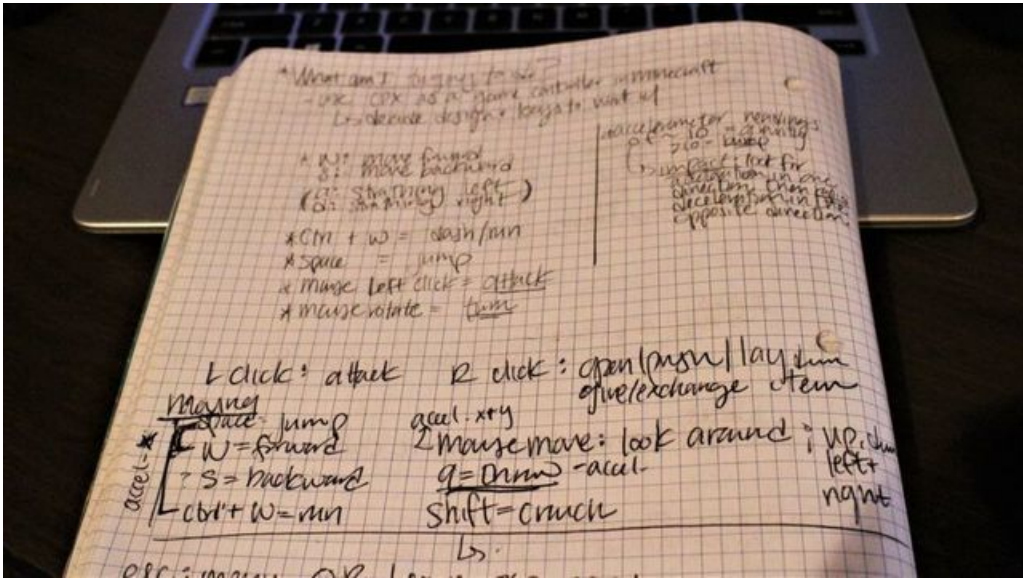 * What am I trying to do?
- use CPX as a game controller in minecraft
↳ decide design + keys to work w/
* W: move forward
S: move backward
(a: strafing left
d: strafing right)
* Ctrl + W = dash/run
* Space = jump
* mouse left click = attack
* mouse rotate = turn
accelerometer readings
of ~ 10 = gravity
>10 = bump
↳ impact: look for
acceleration in one
direction then
deceleration in
opposite direction
L click: attack R click: open/push/lay item
give/exchange item
moving
Space: jump
W = forward
? S = backward
ctrl + W = run
accel-*
accel. x+y
mouse move: look around : up, down
left +
right
q = throw - accel.
Shift = crouch
↳.
esc: menu OR